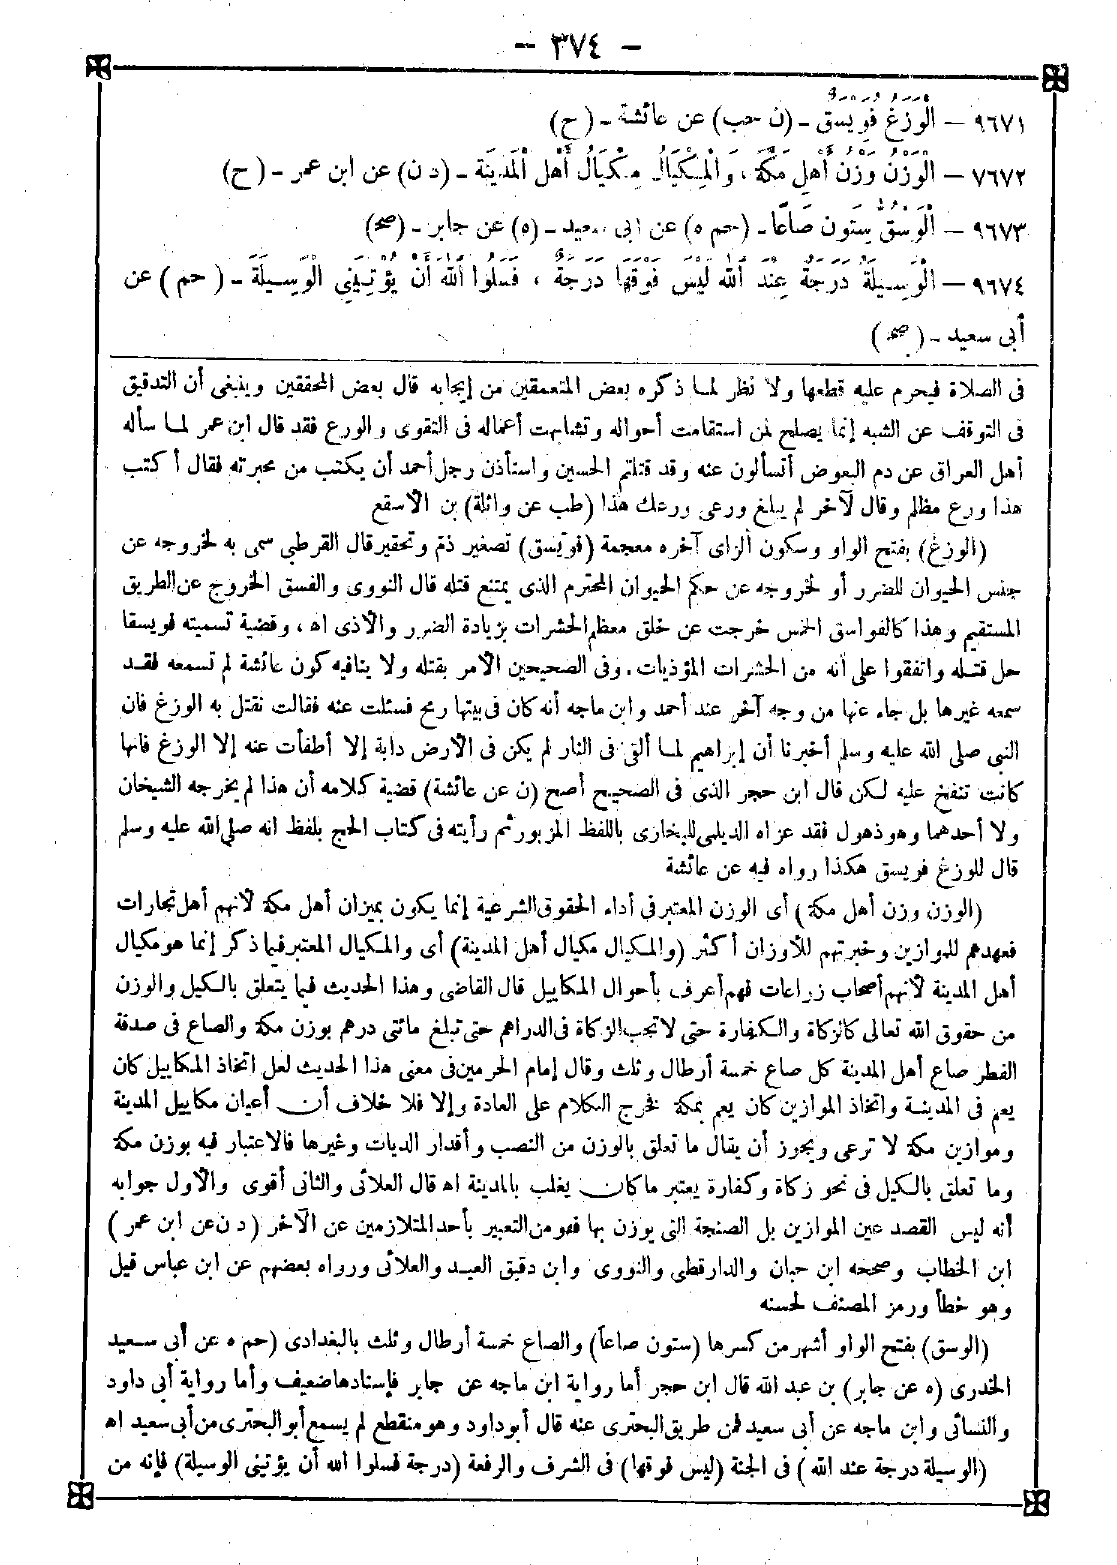 – ٣٧٤ –
٩٦٧١ – الْوَزَغُ فُوَيْسِقٌ – (ن حب) عن عائشة – (ح)
٧٦٧٢ – الْوَزْنُ وَزْنُ أَهْلِ مَكَّةَ، وَالْمِكْيَالُ مِكْيَالُ أَهْلِ الْمَدِينَةِ – (د ن) عن ابن عمر – (ح)
٩٦٧٣ – الْوَسْقُ سِتُّونَ صَاعًا – (حم ه) عن ابى سعيد – (ه) عن جابر – (صح)
٩٦٧٤ – الْوَسِيلَةُ دَرَجَةٌ عِنْدَ اللهِ لَيْسَ فَوْقَهَا دَرَجَةٌ ، فَسَلُوا اللهَ أَنْ يُؤْتِيَنِى الْوَسِيلَةَ – (حم) عن
أبى سعيد – (صح)
فى الصلاة فيحرم عليه قطعها ولا نظر لما ذكره بعض المتعمقين من إيجابه قال بعض المحققين وينبغى أن التدقيق
فى التوقف عن الشبه إنما يصلح لمن استقامت أحواله وتشابهت أعماله فى التقوى والورع فقد قال ابن عمر لما سأله
أهل العراق عن دم البعوض أتسألون عنه وقد قتلتم الحسين واستأذن رجل أحمد أن يكتب من محبرته فقال أكتب
هذا ورع مظلم وقال لآخر لم يبلغ ورعى ورعك هذا (طب عن واثلة) بن الأسقع
(الوزغ) بفتح الواو وسكون الزاى آخره معجمة (فويسق) تصغير ذم وتحقير قال القرطبى سمى به لخروجه عن
جنس الحيوان للضرر أو لخروجه عن حكم الحيوان المحترم الذى يمتنع قتله قال النووى والفسق الخروج عن الطريق
المستقيم وهذا كالفواسق الخمس خرجت عن خلق معظم الحشرات بزيادة الضرر والأذى اه ، وقضية تسميته فويسقا
حل قتله واتفقوا على أنه من الحشرات المؤذيات . وفى الصحيحين الأمر بقتله ولا ينافيه كون عائشة لم تسمعه فقد
سمعه غيرها بل جاء عنها من وجه آخر عند أحمد وابن ماجه أنه كان فى بيتها رمح فسئلت عنه فقالت نقتل به الوزغ فان
النبى صلى الله عليه وسلم أخبرنا أن إبراهيم لما ألقى فى النار لم يكن فى الأرض دابة إلا أطفأت عنه إلا الوزغ فانها
كانت تنفخ عليه لكن قال ابن حجر الذى فى الصحيح أصح (ن عن عائشة) قضية كلامه أن هذا لم يخرجه الشيخان
ولا أحدهما وهو ذهول فقد عزاه الديلمى للبخارى باللفظ المزبور ثم رأيته فى كتاب الحج بلفظ انه صلى الله عليه وسلم
قال للوزغ فويسق هكذا رواه فيه عن عائشة
(الوزن وزن أهل مكة) أى الوزن المعتبر فى أداء الحقوق الشرعية إنما يكون بميزان أهل مكة لأنهم أهل تجارات
فعهدهم للموازين وخبرتهم للأوزان أكثر (والمكيال مكيال أهل المدينة) أى والمكيال المعتبر فيما ذكر إنما هو مكيال
أهل المدينة لأنهم أصحاب زراعات فهم أعرف بأحوال المكاييل قال القاضى وهذا الحديث فيما يتعلق بالكيل والوزن
من حقوق الله تعالى كالزكاة والكفارة حتى لا تجب الزكاة فى الدراهم حتى تبلغ مائتى درهم بوزن مكة والصاع فى صدقة
الفطر صاع أهل المدينة كل صاع خمسة أرطال وثلث وقال إمام الحرمين فى معنى هذا الحديث لعل اتخاذ المكاييل كان
يعم فى المدينة واتخاذ الموازين كان يعم بمكة فخرج الكلام على العادة وإلا فلا خلاف أن أعيان مكاييل المدينة
وموازين مكة لا ترعى ويجوز أن يقال ما تعلق بالوزن من النصب وأقدار الديات وغيرها فالاعتبار فيه بوزن مكة
وما تعلق بالكيل فى نحو زكاة وكفارة يعتبر ما كان يغلب بالمدينة اه قال العلائى والثانى أقوى والأول جوابه
أنه ليس القصد عين الموازين بل الصنجة التى يوزن بها فهو من التعبير بأحد المتلازمين عن الآخر (د ن عن ابن عمر)
ابن الخطاب وصححه ابن حبان والدارقطنى والنووى وابن دقيق العيد والعلائى ورواه بعضهم عن ابن عباس قيل
وهو خطأ ورمز المصنف لحسنه
(الوسق) بفتح الواو أشهر من كسرها (ستون صاعا) والصاع خمسة أرطال وثلث بالبغدادى (حم ه عن أبى سعيد
الخدرى (ه عن جابر) بن عبد الله قال ابن حجر أما رواية ابن ماجه عن جابر فإسنادها ضعيف وأما رواية أبى داود
والنسائى وابن ماجه عن أبى سعيد فمن طريق البحترى عنه قال أبو داود وهو منقطع لم يسمع أبو البحترى من أبى سعيد اه
(الوسيلة درجة عند الله) فى الجنة (ليس فوقها) فى الشرف والرفعة (درجة فسلوا الله أن يؤتينى الوسيلة) فإنه من